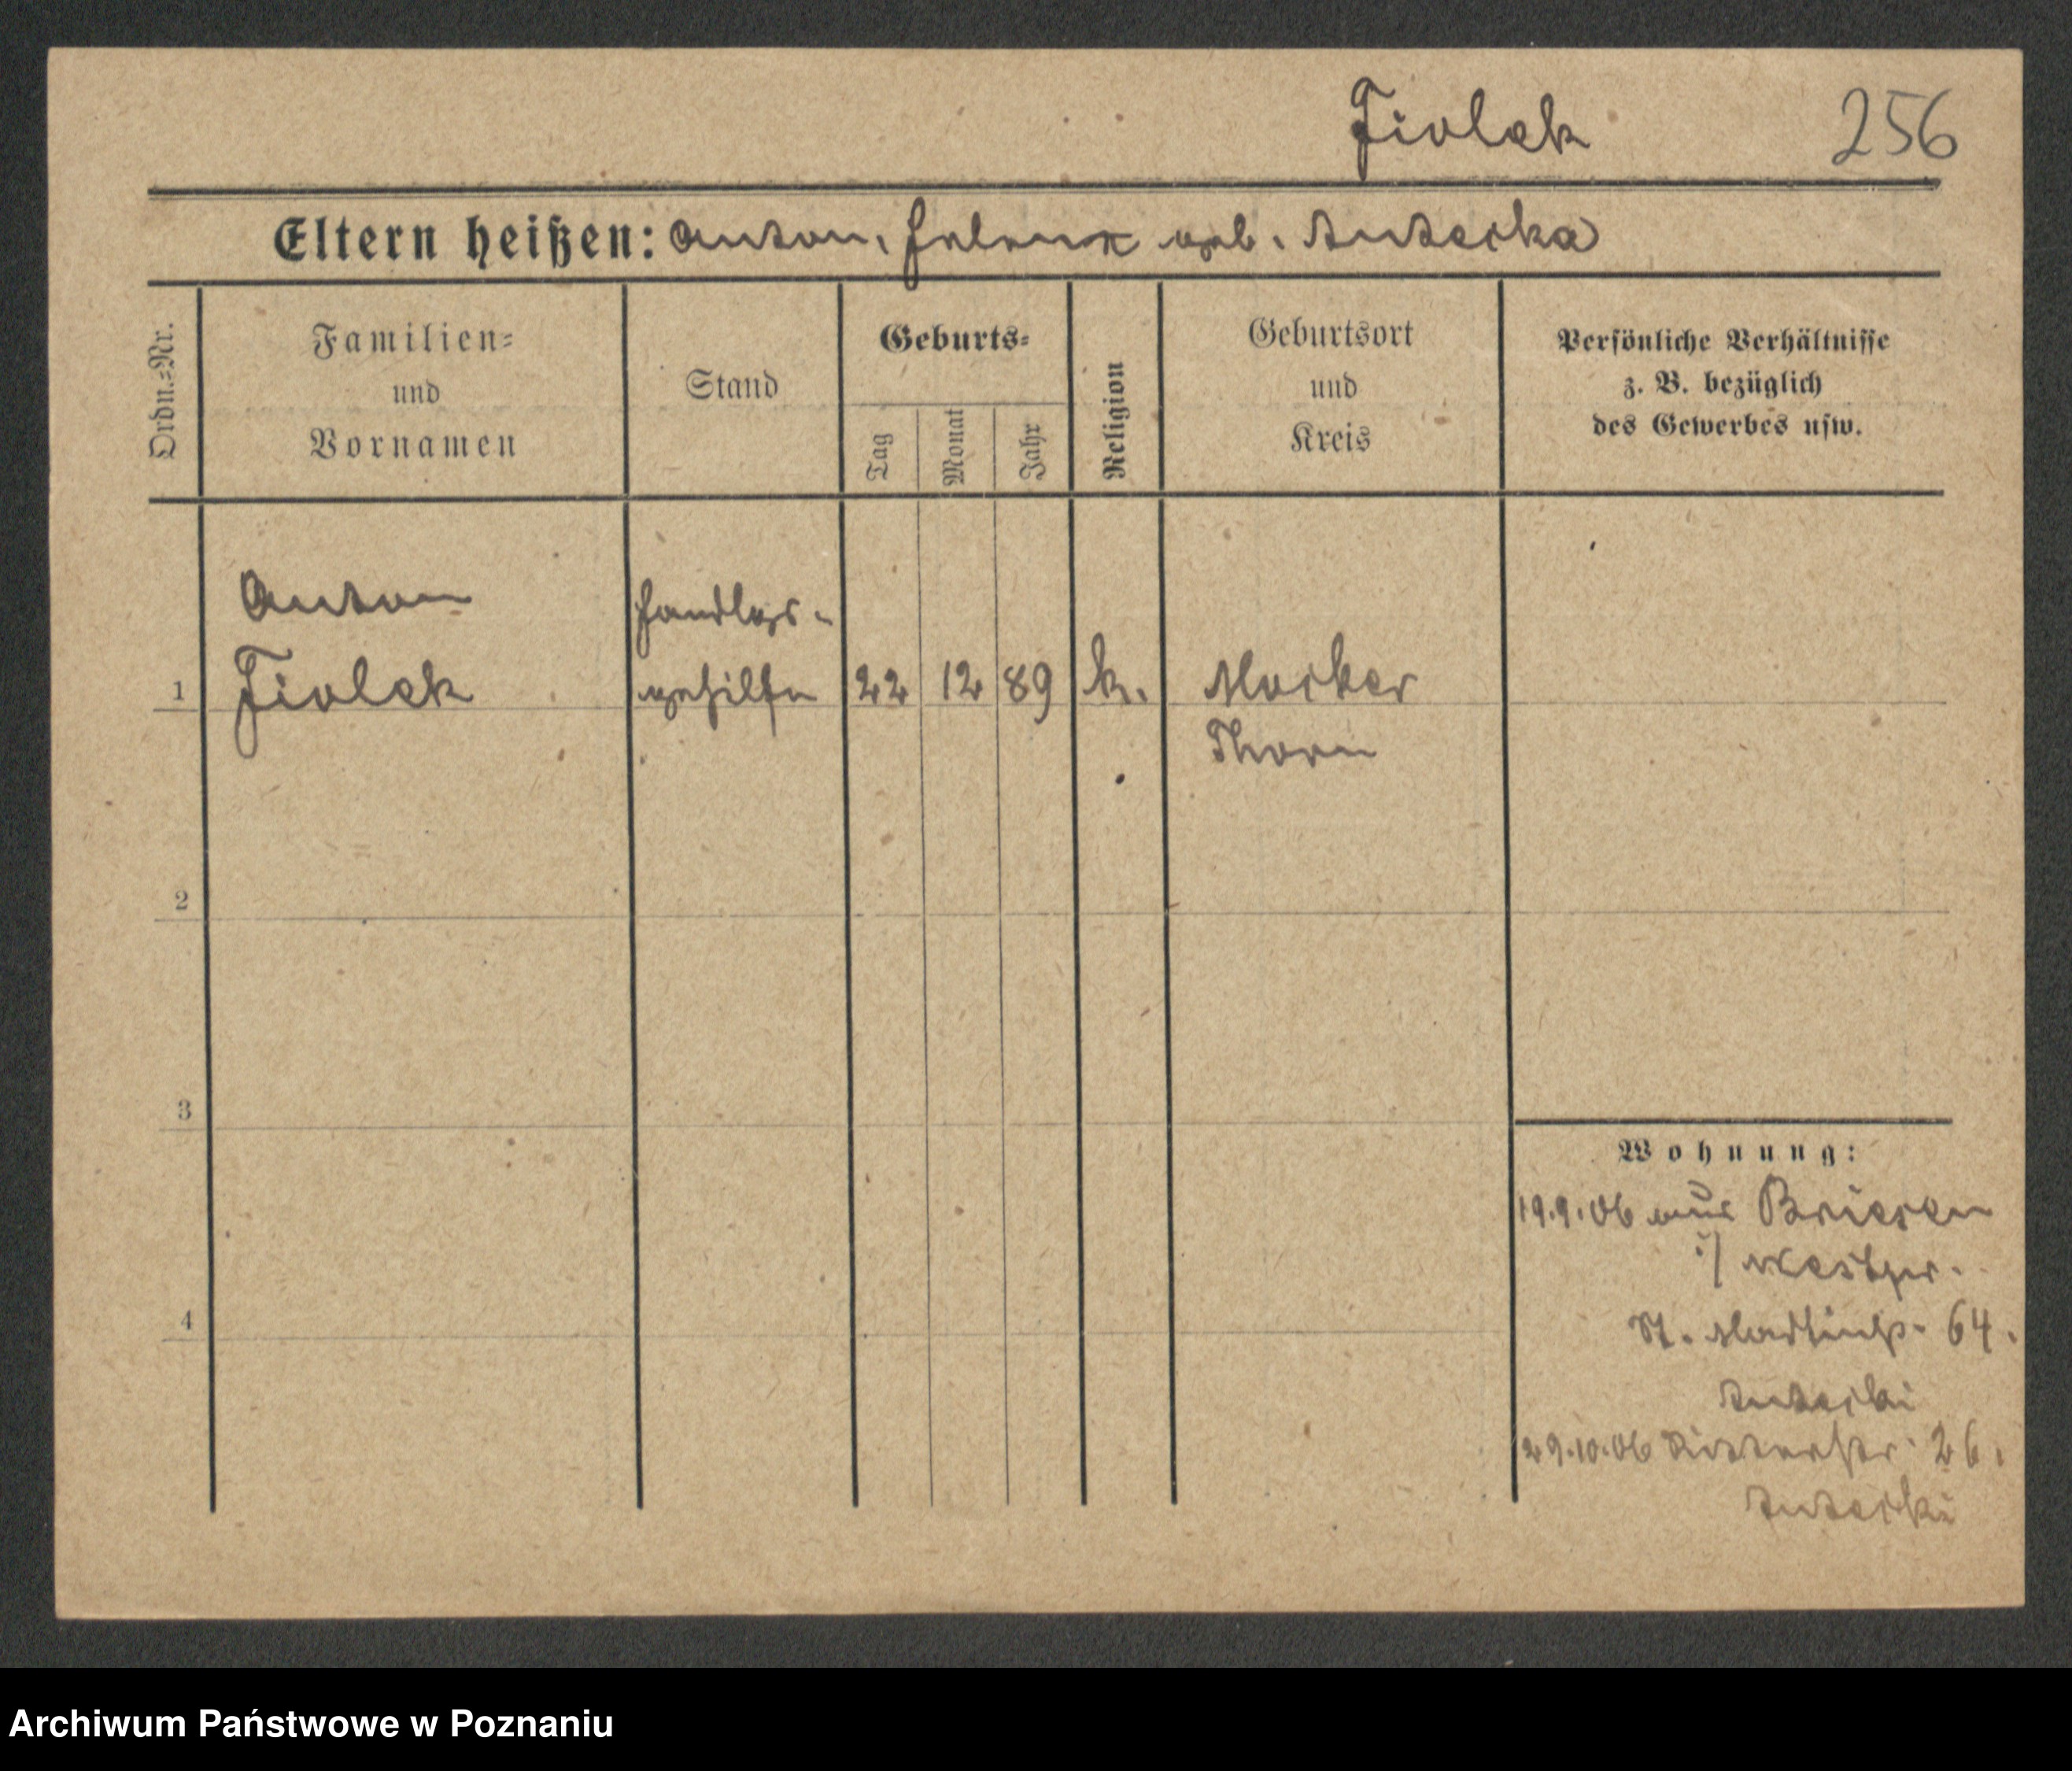 Fiolek 256
Eltern heißen: Anton, Helene geb. Antecka
Ordn.-Nr.
Familien-
und
Vornamen
Stand
Geburts-
Tag
Monat
Jahr
Religion
Geburtsort
und
Kreis
Persönliche Verhältnisse
z. B. bezüglich
des Gewerbes usw.
Anton Handlgs-
1 Fiolek gehilfe 22 12 89 k. Mocker
Thorn
2
3
4
Wohnung:
19.9.06 aus Briesen
i/ Westpr.
St. Martinstr. 64.
29.10.06 Ritterstr. 26.
Archiwum Państwowe w Poznaniu